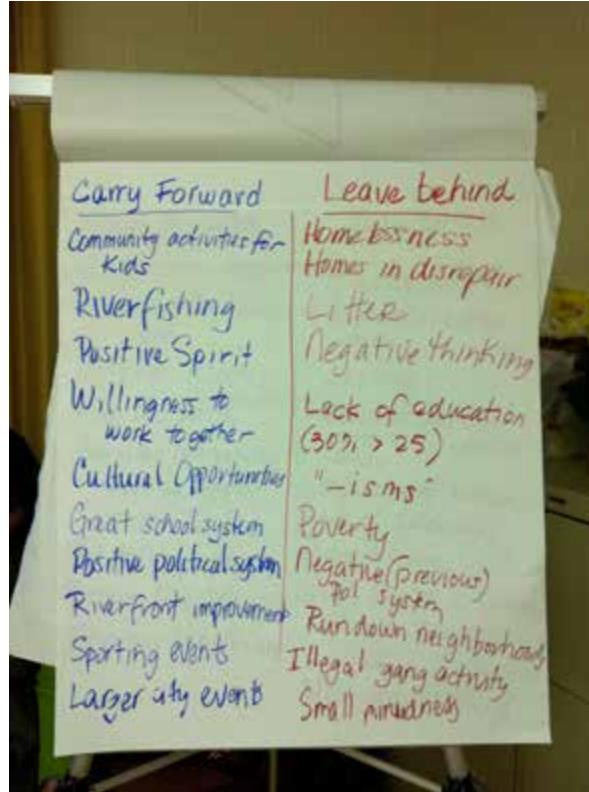 Carry Forward
Community activities for
Kids
Riverfishing
Positive Spirit
Willingness to
work together
Cultural Opportunities
Great school system
Positive political system
Riverfront improvement
Sporting events
Larger city events
Leave behind
Homelessness
Homes in disrepair
Litter
Negative thinking
Lack of education
(30% > 25)
"-isms"
Poverty
Negative (previous)
pol system
Rundown neighborhoods
Illegal gang activity
Small mindedness